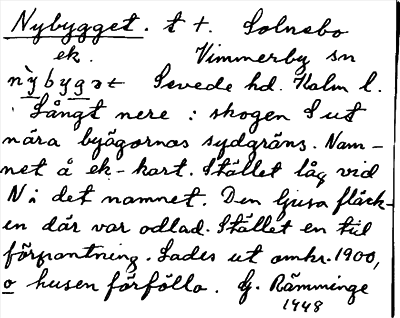 Nybygget. t +. Solnebo
ek. Vimmerby sn
nybygət Sevede hd. Kalm l.
Långt nere i skogen S ut
nära byägornas sydgräns. Nam-
net å ek-kart. Stället låg vid
N i det namnet. Den ljusa fläck-
en där var odlad. Stället en til
förpantning. Lades ut omkr. 1900,
o husen förföllo. G. Rämminge
1948